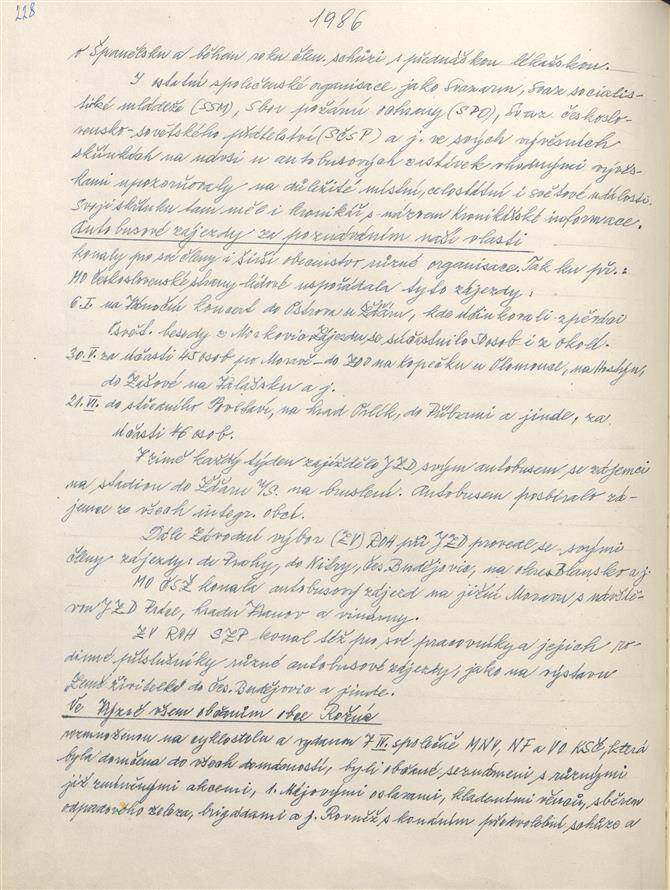 228
1986
o Španělsku a během roku člen. schůzi s přednáškou lékařskou.
I ostatní společenské organisace jako Svazarm, Svaz socialis-
tické mládeže (SSM), Sbor požární ochrany (SPO), Svaz českoslo-
vensko-sovětského přátelství (SČSP) a j. ve svých vývěsních
skříňkách na návsi u autobusových zastávek vhodnými vývěs-
kami upozorňovaly na důležité místní, celostátní i světové události.
Svoji skříňku tam měl i kronikář s názvem Kronikářské informace.
Autobusové zájezdy za poznáváním naší vlasti
konaly pro své členy i širší obecenstvo různé organisace. Tak ku př.:
MO Československé strany lidové uspořádala tyto zájezdy:
6.I. na Vánoční koncert do Ostrova u Žďáru, kde účinkovali zpěváci
Osvět. besedy z Morkovic. Zájezdu se súčastnilo osob i z okolí.
30.V. za účasti 45 osob po Moravě - do ZOO na kopečku u Olomouce, na Hostýn,
do na Valašsku a j.
21.VI. do středního Povltaví, na hrad Orlík, do Příbrami a jinde, za
účasti 46 osob.
V zimě každý týden zajíždělo JZD svým autobusem se zájemci
na stadion do Žďáru n/S. na bruslení. Autobusem posbíralo zá-
jemce ze všech integr. obcí.
Dále Závodní výbor (ZV) ROH při JZD provedl se svými
členy zájezdy: do Prahy, do Nitry, Čes. Budějovic, na okres Blansko a j.
MO ČSŽ konala autobusový zájezd na jižní Moravu s návště-
vou JZD hradu Vranov a vinárny.
ZV ROH SZP konal též pro své pracovníky a jejich ro-
dinné příslušníky různé autobusové zájezdy, jako na výstavu
Země živitelka do Čes. Budějovic a jinde.
Ve Výzvě všem občanům obce Rožná
rozmnoženou na cyklostylu a vydanou 7.III. společně MNV, NF a VO KSČ, která
byla doručena do všech domácností, byli občané seznámeni s různými
již zmíněnými akcemi, 1. Májovými oslavami, kladeními věnců, sběrem
odpadového železa, brigádami a j. Rovněž s konáním předvolební schůze a